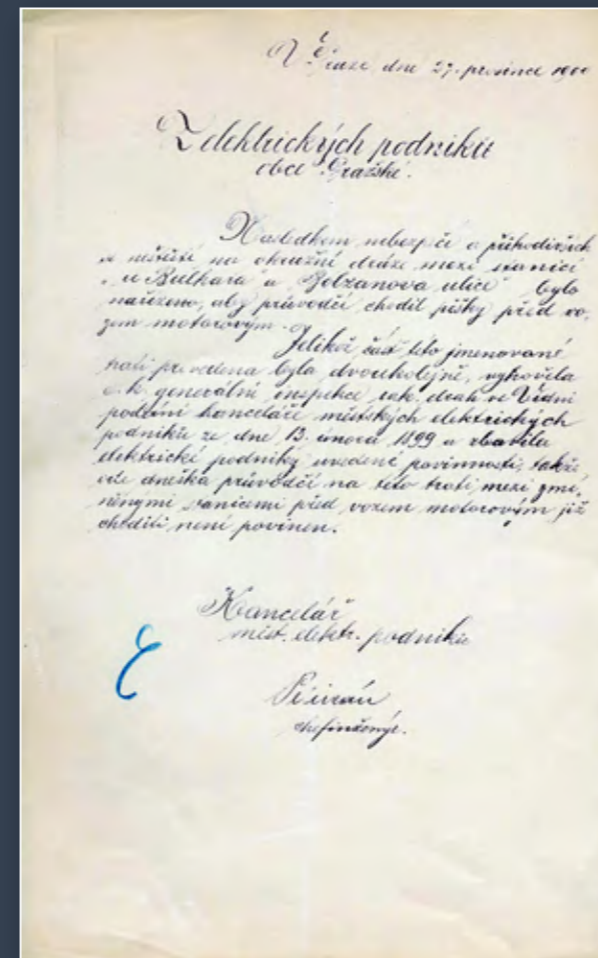 V Praze, dne 27. prosince 1900
Z elektrických podniků
obce Pražské.
Následkem nebezpečí a přihodivších
se neštěstí na okružní dráze mezi stanicí
„u Bulhara“ a „Bolzanova ulice“ bylo
nařízeno, aby průvodčí chodil pěšky před vo-
zem motorovým.
Jelikož část této jmenované
trati provedena byla dvoukolejně, vyhověla
c. k. generální inspekce rak. drah ve Vídni
podání kanceláře městských elektrických
podniků ze dne 13. února 1899 a zbavila
elektrické podniky uvedené povinnosti, takže
ode dneška průvodčí na této trati mezi zmí-
něnými stanicemi před vozem motorovým již
choditi není povinen.
Kancelář
měst. elektr. podniků
chefinženýr.